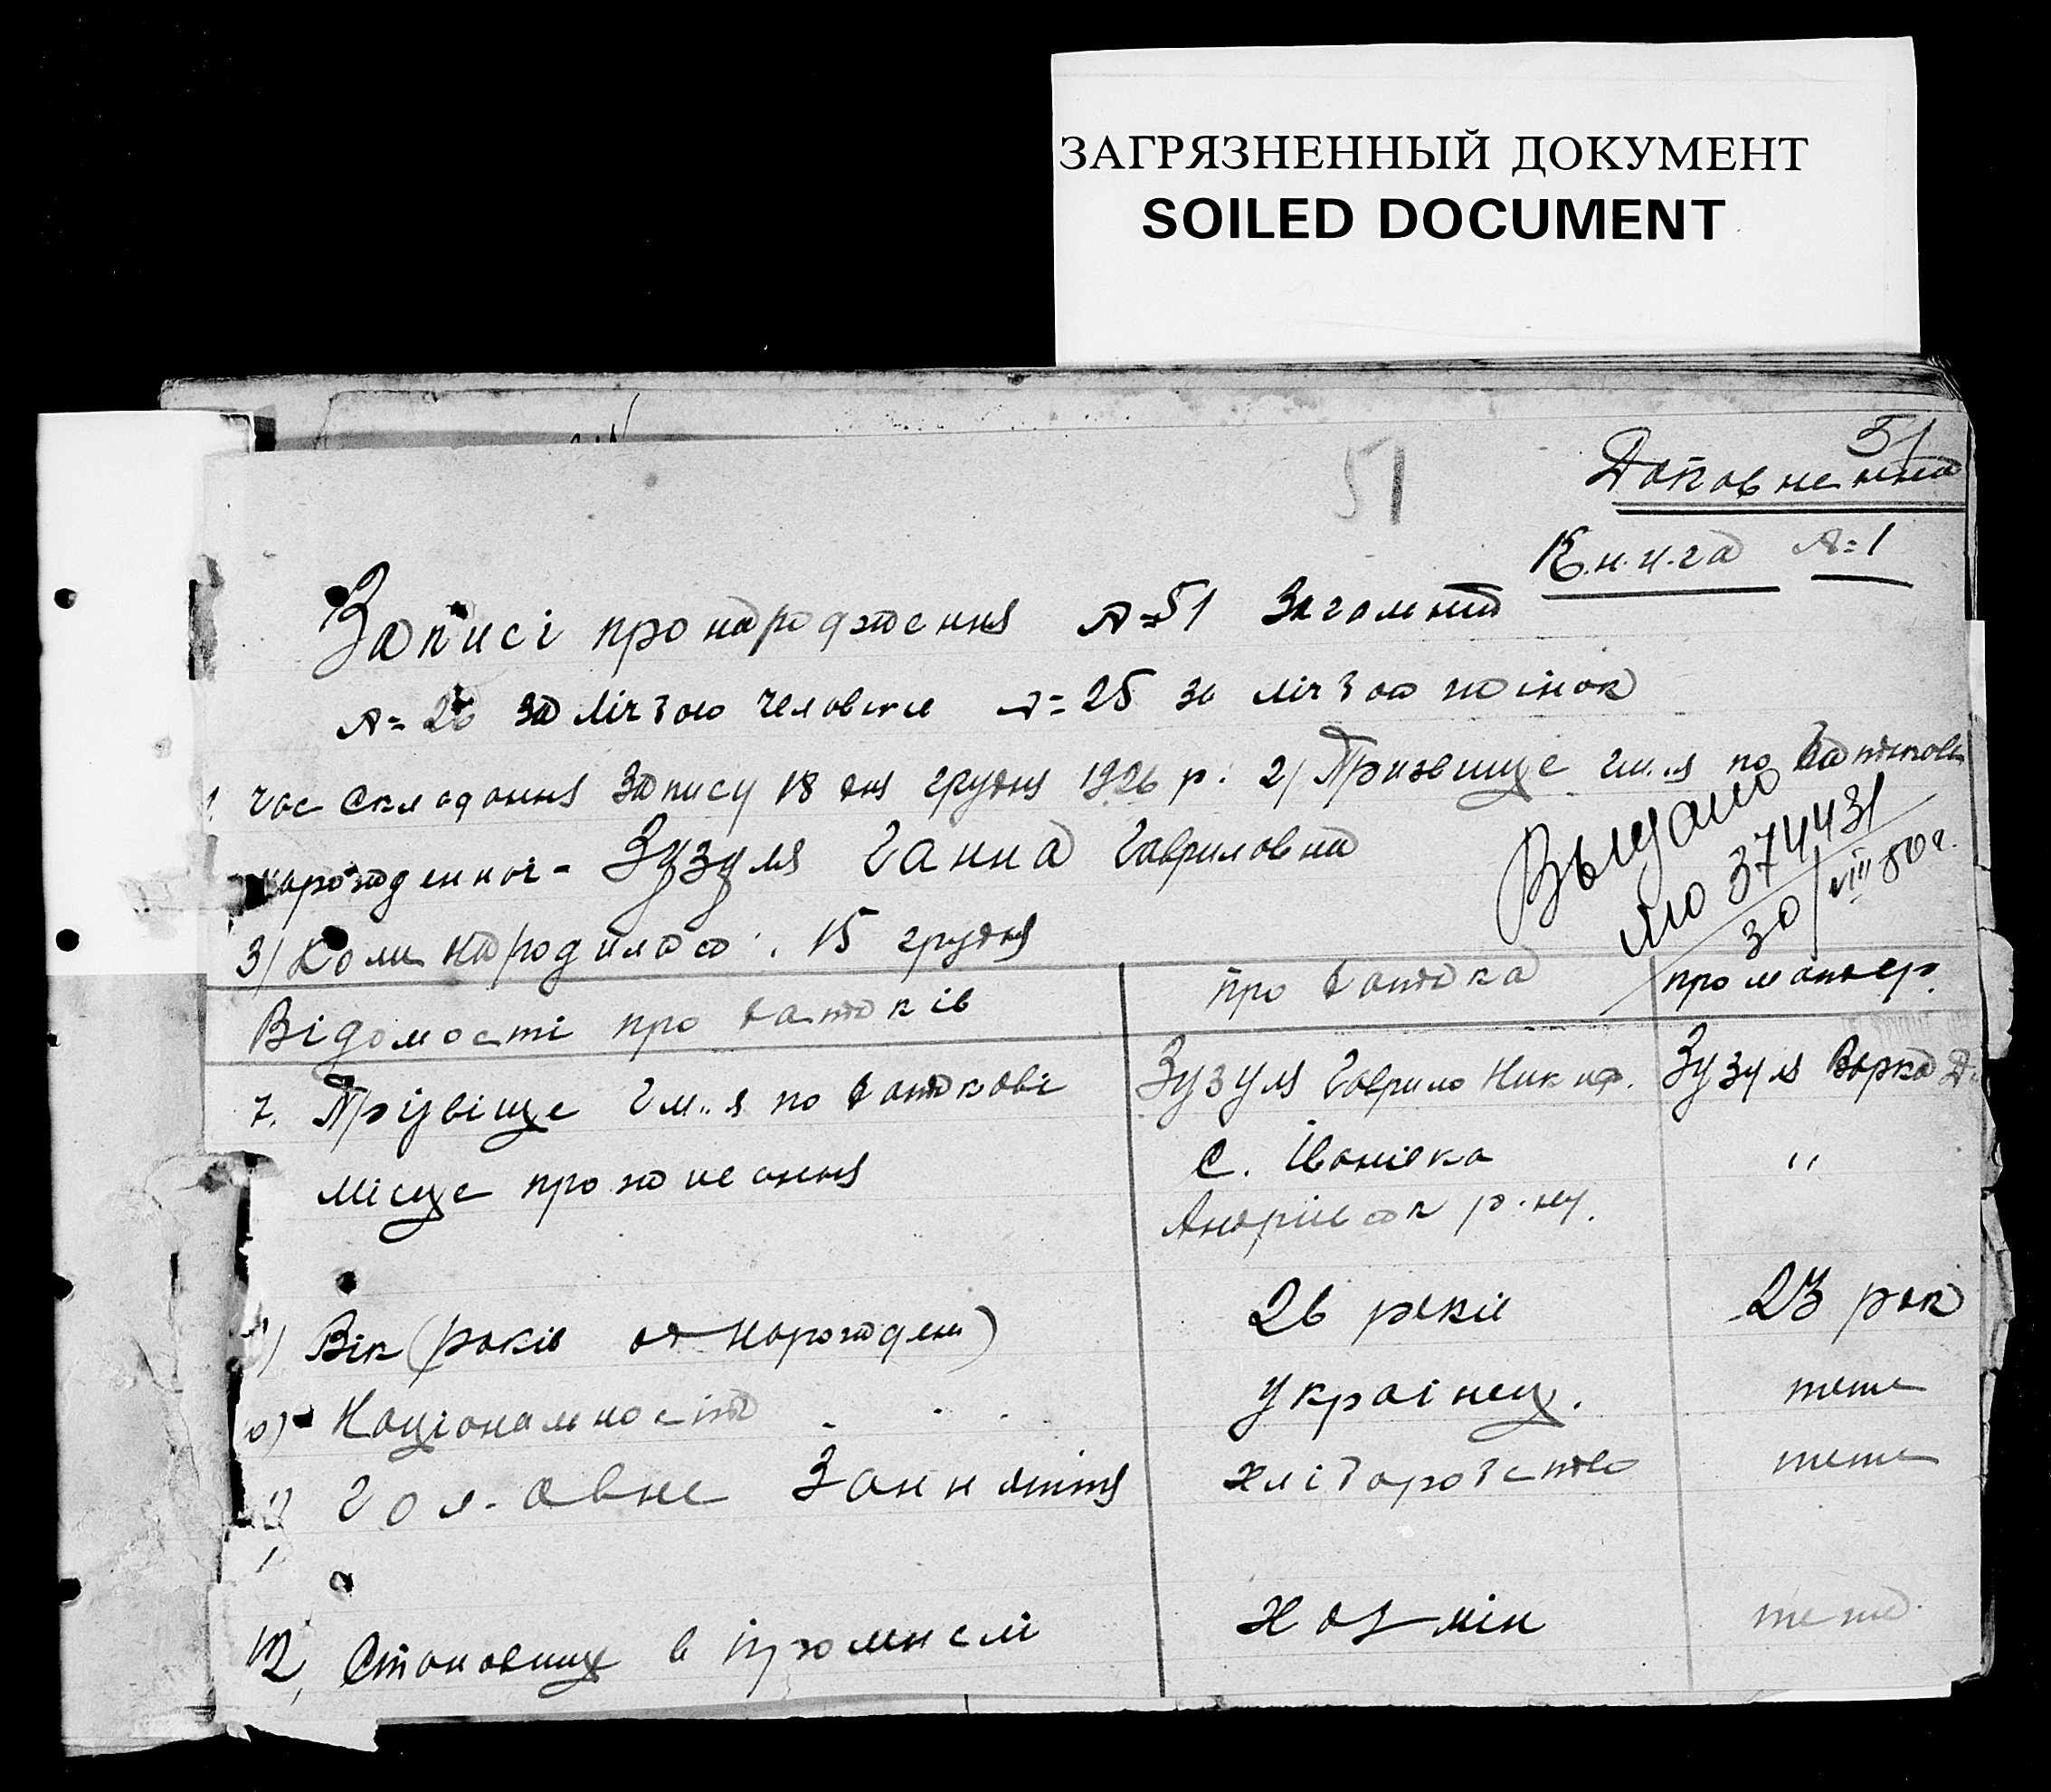 ЗАГРЯЗНЕННЫЙ ДОКУМЕНТ
SOILED DOCUMENT
51
51
Доповнення
Книга №1
Записі про народження №51 Загальний
№ 26 за лічбою чоловіче № 25 за лічбою жінок
1. Час складання запису 18 дня грудня 1926 р. 2) Призвище Им"я по батькові
нарожденної - Зузуля Ганна Гавриловна
Выдано
ЯЮ 374431
30/VIII 80 г.
3) Коли народилась: 15 грудня
Відомості про батьків про батька про матер.
7. Прізвіще Им"я по батькові Зузуля Гаврило Никиф. Зузуля Варка
Місце проживання с. Іванівка "
Андріївськ р-ну.
Вік (років од нарожден) 26 років 23 рок
Національність . . . Українец. теж
Головне Заняття хліборобство теж
12, Становище в промислі Хазяїн теж